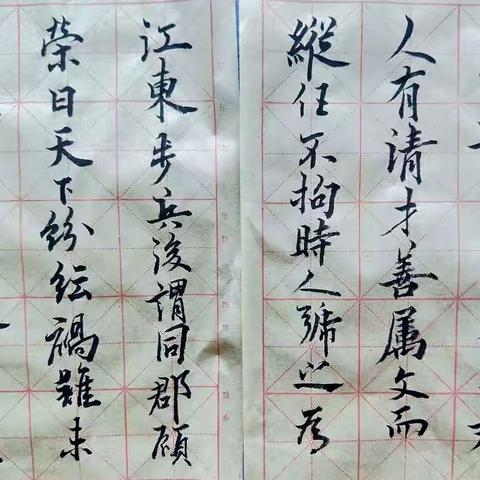 人有清才善属文而
縱任不拘時人號之为
江東步兵後謂同郡顾
榮曰天下紛紜禍難未